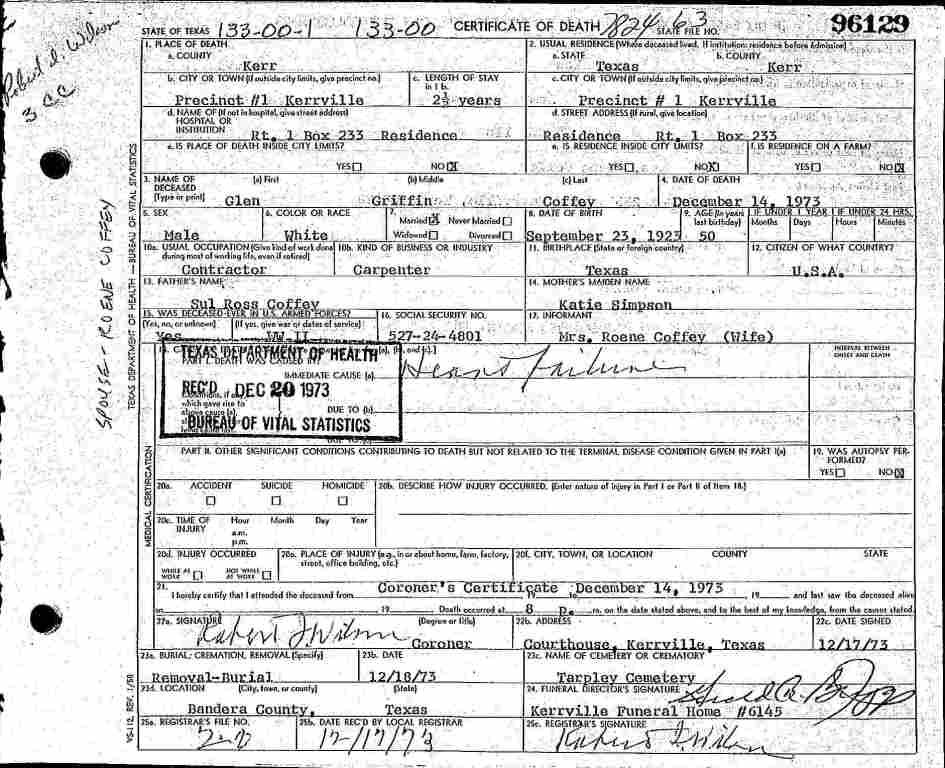 Robert J. Wilson
3 CC
STATE OF TEXAS 133-00-1 133-00 CERTIFICATE OF DEATH STATE FILE NO. 96129
1. PLACE OF DEATH 2. USUAL RESIDENCE (Where deceased lived. If institution: residence before admission)
a. COUNTY a. STATE b. COUNTY
Kerr Texas Kerr
b. CITY OR TOWN (If outside city limits, give precinct no.) c. LENGTH OF STAY in 1 b. c. CITY OR TOWN (If outside city limits, give precinct no.)
Precinct #1 Kerrville 2½ years Precinct # 1 Kerrville
d. NAME OF (If not in hospital, give street address) HOSPITAL OR INSTITUTION d. STREET ADDRESS (If rural, give location)
Rt. 1 Box 233 Residence Residence Rt. 1 Box 233
e. IS PLACE OF DEATH INSIDE CITY LIMITS? e. IS RESIDENCE INSIDE CITY LIMITS? f. IS RESIDENCE ON A FARM?
YES NO X YES NO X YES NO X
3. NAME OF DECEASED (Type or print) (a) First (b) Middle (c) Last 4. DATE OF DEATH
Glen Griffin Coffey December 14, 1973
5. SEX 6. COLOR OR RACE 7. Married X Never Married 8. DATE OF BIRTH 9. AGE (In years last birthday) IF UNDER 1 YEAR IF UNDER 24 HRS.
Widowed Divorced Months Days Hours Minutes
Male White September 23, 1923 50
10a. USUAL OCCUPATION (Give kind of work done during most of working life, even if retired) 10b. KIND OF BUSINESS OR INDUSTRY 11. BIRTHPLACE (State or foreign country) 12. CITIZEN OF WHAT COUNTRY?
Contractor Carpenter Texas U.S.A.
13. FATHER'S NAME 14. MOTHER'S MAIDEN NAME
Sul Ross Coffey Katie Simpson
15. WAS DECEASED EVER IN U.S. ARMED FORCES? 16. SOCIAL SECURITY NO. 17. INFORMANT
(Yes, no, or unknown) (If yes, give war or dates of service)
Yes WW II 527-24-4801 Mrs. Roene Coffey (Wife)
TEXAS DEPARTMENT OF HEALTH
REC'D DEC 20 1973
BUREAU OF VITAL STATISTICS
PART I. DEATH WAS CAUSED BY: INTERVAL BETWEEN ONSET AND DEATH
IMMEDIATE CAUSE (a) Heart Failure
Conditions, if any, which gave rise to above cause (a),
DUE TO (b)
DUE TO
PART II. OTHER SIGNIFICANT CONDITIONS CONTRIBUTING TO DEATH BUT NOT RELATED TO THE TERMINAL DISEASE CONDITION GIVEN IN PART I(a) 19. WAS AUTOPSY PERFORMED?
YES NO X
20a. ACCIDENT SUICIDE HOMICIDE 20b. DESCRIBE HOW INJURY OCCURRED. (Enter nature of injury in Part I or Part II of Item 18.)
20c. TIME OF INJURY Hour Month Day Year
a.m.
p.m.
20d. INJURY OCCURRED 20e. PLACE OF INJURY (e.g., in or about home, farm, factory, street, office building, etc.) 20f. CITY, TOWN, OR LOCATION COUNTY STATE
WHILE AT WORK NOT WHILE AT WORK
Coroner's Certificate December 14, 1973
21. I hereby certify that I attended the deceased from 19 to 19 and last saw the deceased alive
on 19 Death occurred at 8 p. m. on the date stated above, and to the best of my knowledge, from the causes stated.
22a. SIGNATURE (Degree or title) 22b. ADDRESS 22c. DATE SIGNED
Robert J. Wilson Coroner Courthouse, Kerrville, Texas 12/17/73
23a. BURIAL, CREMATION, REMOVAL (Specify) 23b. DATE 23c. NAME OF CEMETERY OR CREMATORY
Removal-Burial 12/18/73 Tarpley Cemetery
23d. LOCATION (City, town, or county) (State) 24. FUNERAL DIRECTOR'S SIGNATURE
Bandera County, Texas Kerrville Funeral Home #6145
25a. REGISTRAR'S FILE NO. 25b. DATE REC'D BY LOCAL REGISTRAR 25c. REGISTRAR'S SIGNATURE
12/17/73 Robert J. Wilson
SPOUSE - ROENE COFFEY
TEXAS DEPARTMENT OF HEALTH — BUREAU OF VITAL STATISTICS
MEDICAL CERTIFICATION
VS-112 REV. 1/58